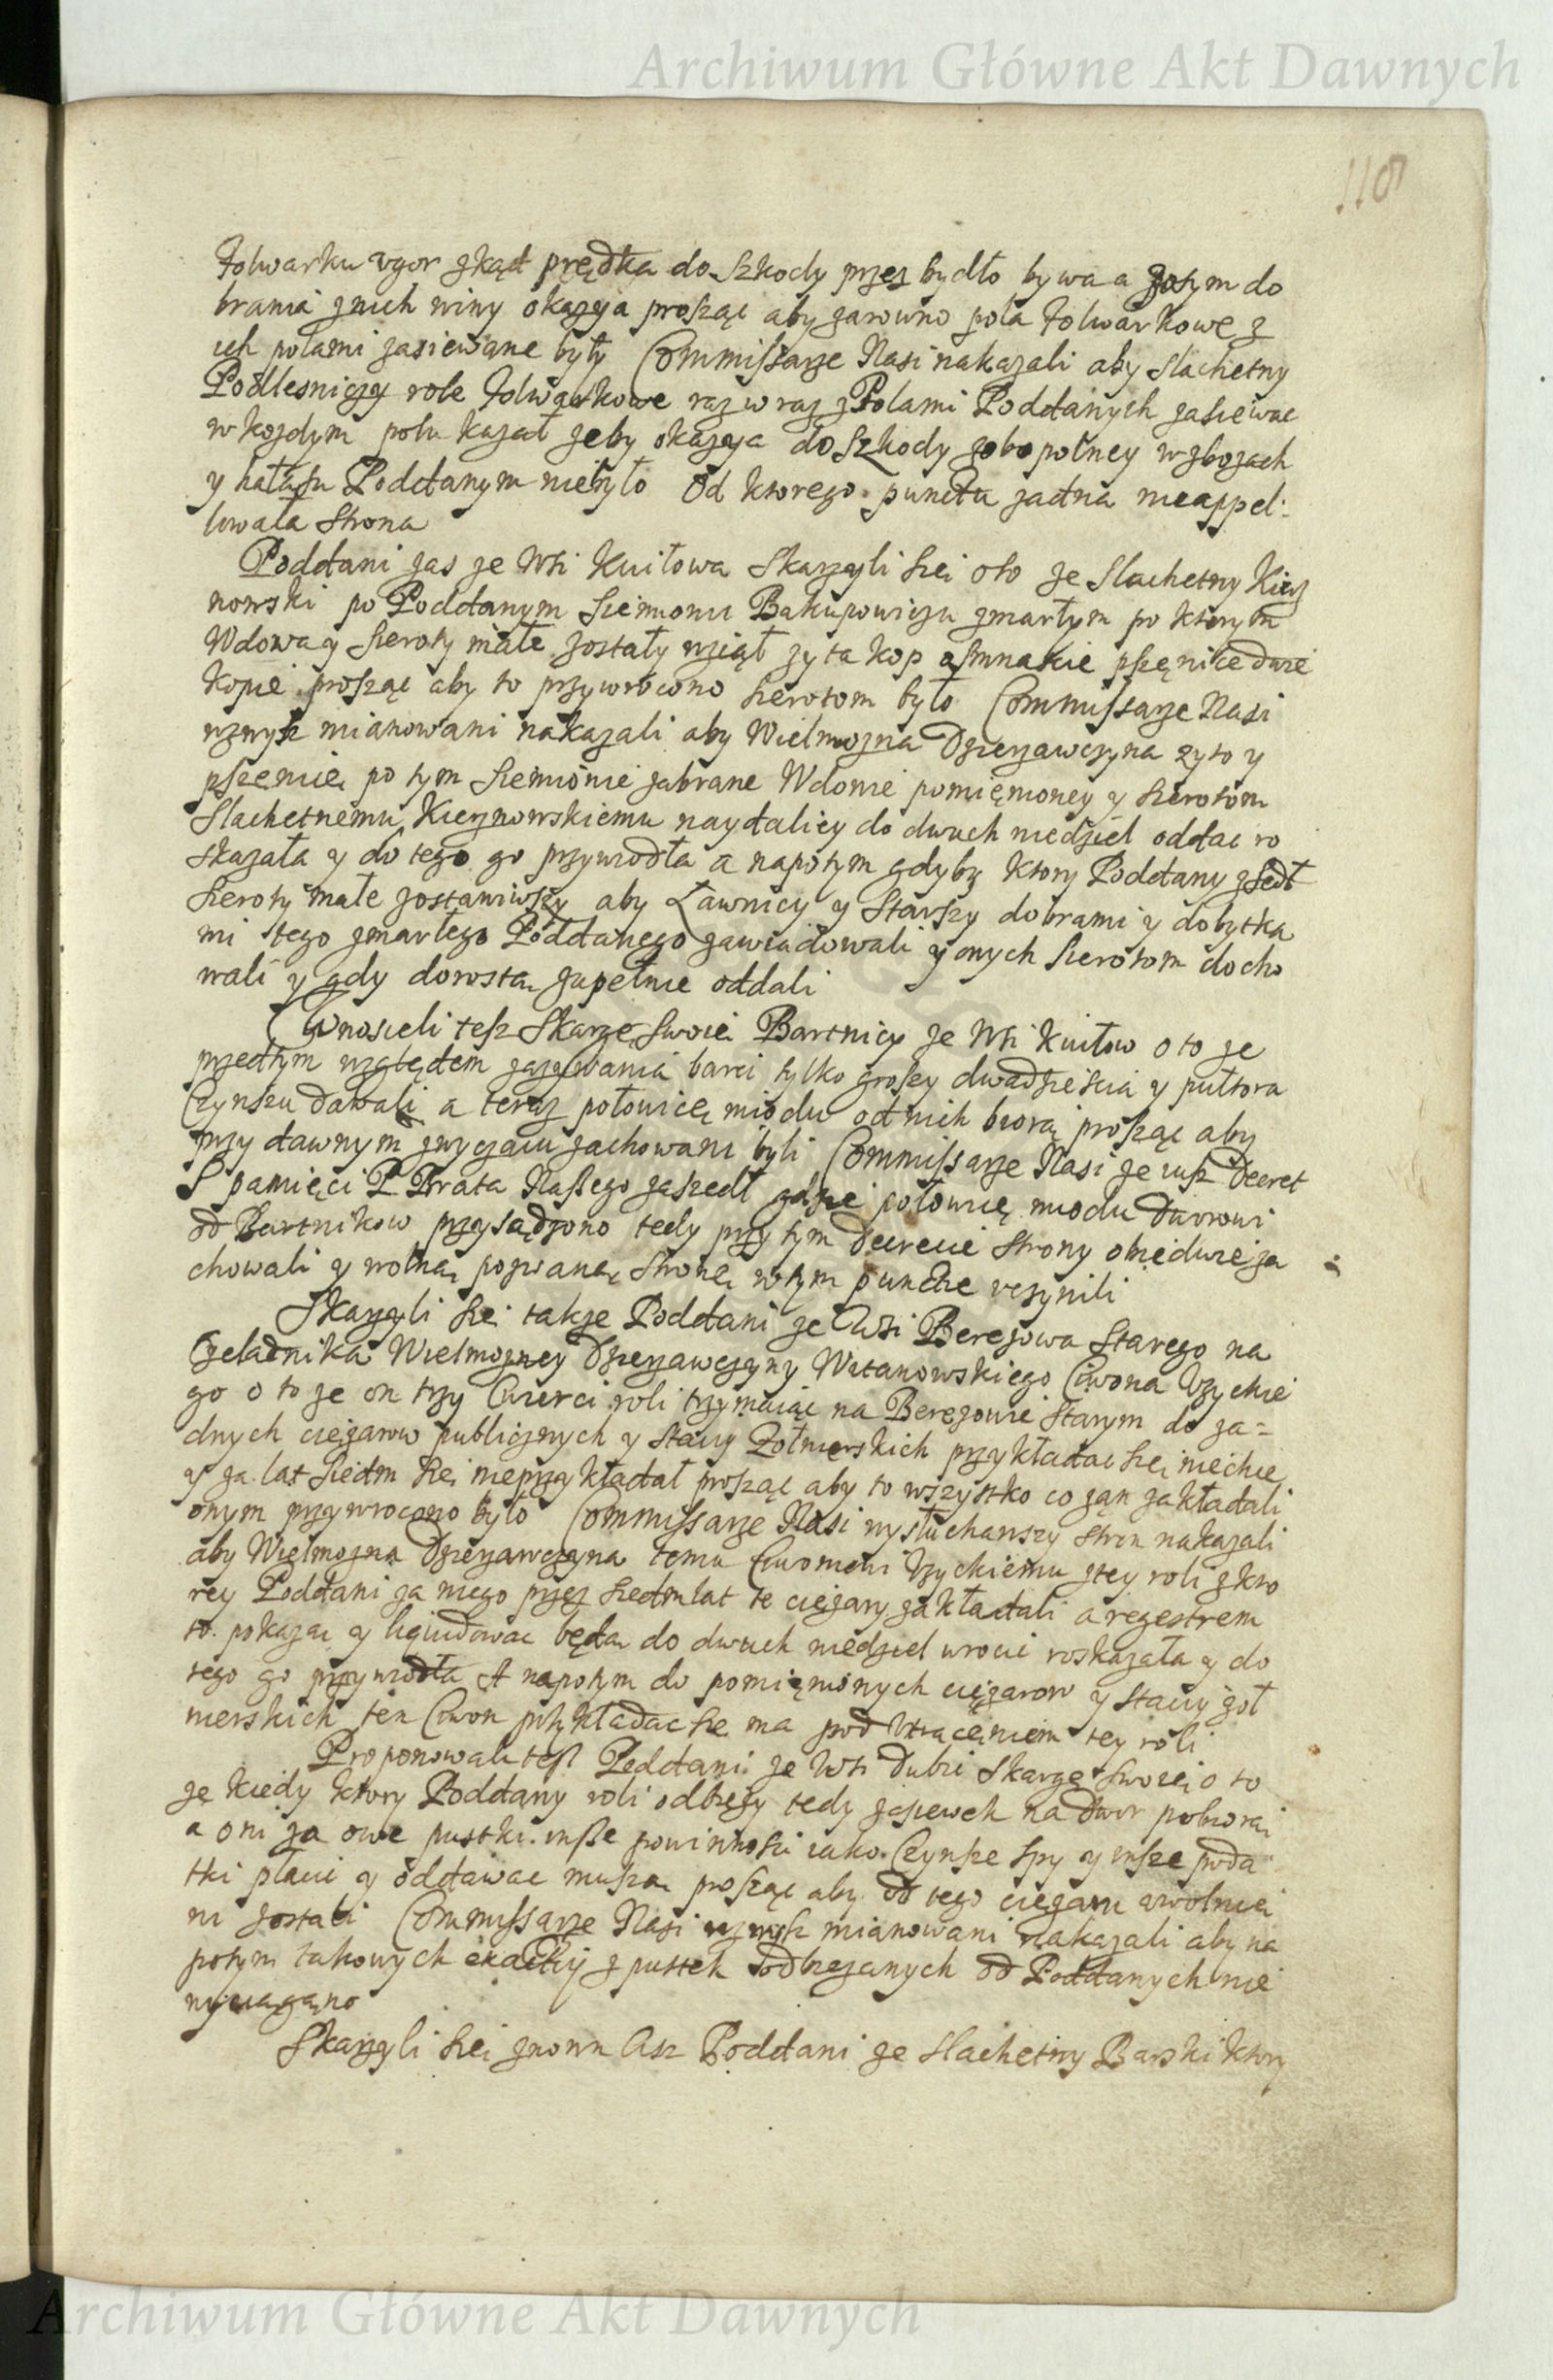 Archiwum Główne Akt Dawnych
118
folwarku ugor zkąd prędka do szkody przez bydło bywa a zatym do
brania z nich winy okazya prosząc aby zarowno pola folwarkowe z
ich polami zasiewane były Commissarze Nasi nakazali aby Slachetny
Podlesniczy role folwarkowe raz w raz z Polami Poddanych zasiewac
w kozdym polu kazał zeby okazya do szkody zobopolney w zbozach
y hałasu Poddanym niebyło Od ktorego punctu zadna nieappel-
lowała strona
Poddani zas ze Wsi Kuiłowa Skarzyli sie o to ze Slachetny Kierz
nowski po Poddanym Siemionu Bakupowiczu zmarłym po ktorym
Wdowa y sieroty małe zostały wziął zyta kop osmnascie pszenice dwie
kopie prosząc aby to przywrocono sierotom było Commissarze Nasi
wzwysz mianowani nakazali aby Wielmozna Dzierzawczyna zyto y
pszenicę po tym Siemionie zabrane Wdowie pomienioney y sierotom
Slachetnemu Kierznowskiemu naydaliey do dwuch niedziel oddac ro
skazała y do tego go przywiodła a napotym gdyby ktory Poddany zszedł
sieroty małe zostawiwszy aby Ławnicy y Starszy dobrami y dobytka
mi tego zmarłego Poddanego zawiadowali y onych sierotom docho
wali y gdy dorostą zupełnie oddali
Wnosieli tesz Skarzę swoię Bartnicy ze Wsi Kuiłow o to ze
przedtym względem zazywania barci tylko groszy dwadziescia y pułtora
Czynszu dawali a teraz połowicę miodu od nich biorą prosząc aby
przy dawnym zwyczaiu zachowani byli Commissarze Nasi ze iusz Decret
S pamięci P Brata Naszego zaszedł gdzie połowicę miodu Dworowi
od Bartnikow przysądzono tedy przy tym Decrecie strony obiedwie za
chowali y wolną pozwaną stronę w tym punctie uczynili
Skarzyli się takze Poddani ze Wsi Berezowa Starego na
Czeladnika Wielmozney Dzierzawczyny Witanowskiego Ciwona Uzyckie
go o to ze on trzy Cwierci roli trzymaiąc na Berezowie Starym do za-
dnych cięzarow publicznych y stacyi Zołnierskich przykładac się niechce
y za lat siedm się nieprzykładał prosząc aby to wszystko co zan zakładali
onym przywrocono było Commissarze Nasi wysłuchawszy stron nakazali
aby Wielmozna Dzierzawczyna temu Ciwonowi Uzyckiemu z tey roli z kto
rey Poddani za niego przez siedm lat te cięzary zakładali a regestrem
to pokazac y liquidowac będą do dwuch niedziel wrocic roskazała y do
tego go przywiodła A napotym do pomienionych cięzarow y stacyi zoł
nierskich ten Ciwon przykładac się ma pod utraceniem tey roli
Proponowali tesz Poddani ze Wsi Dubi Skargę swoię o to
ze kiedy ktory Poddany roli odbiezy tedy zasiewek na dwor pobiorą
a oni za owe pustki insze powinnosci iako Czynsze spy y insze poda
tki płacic y oddawac muszą prosząc aby od tego cięzaru uwolnie
ni zostali Commissarze Nasi wzwysz mianowani nakazali aby na
potym takowych exactij z pustek odbiezanych od Poddanych nie
wyciągano
Skarzyli się znowu Ciz Poddani ze Slachetny Barski ktory
Archiwum Główne Akt Dawnych